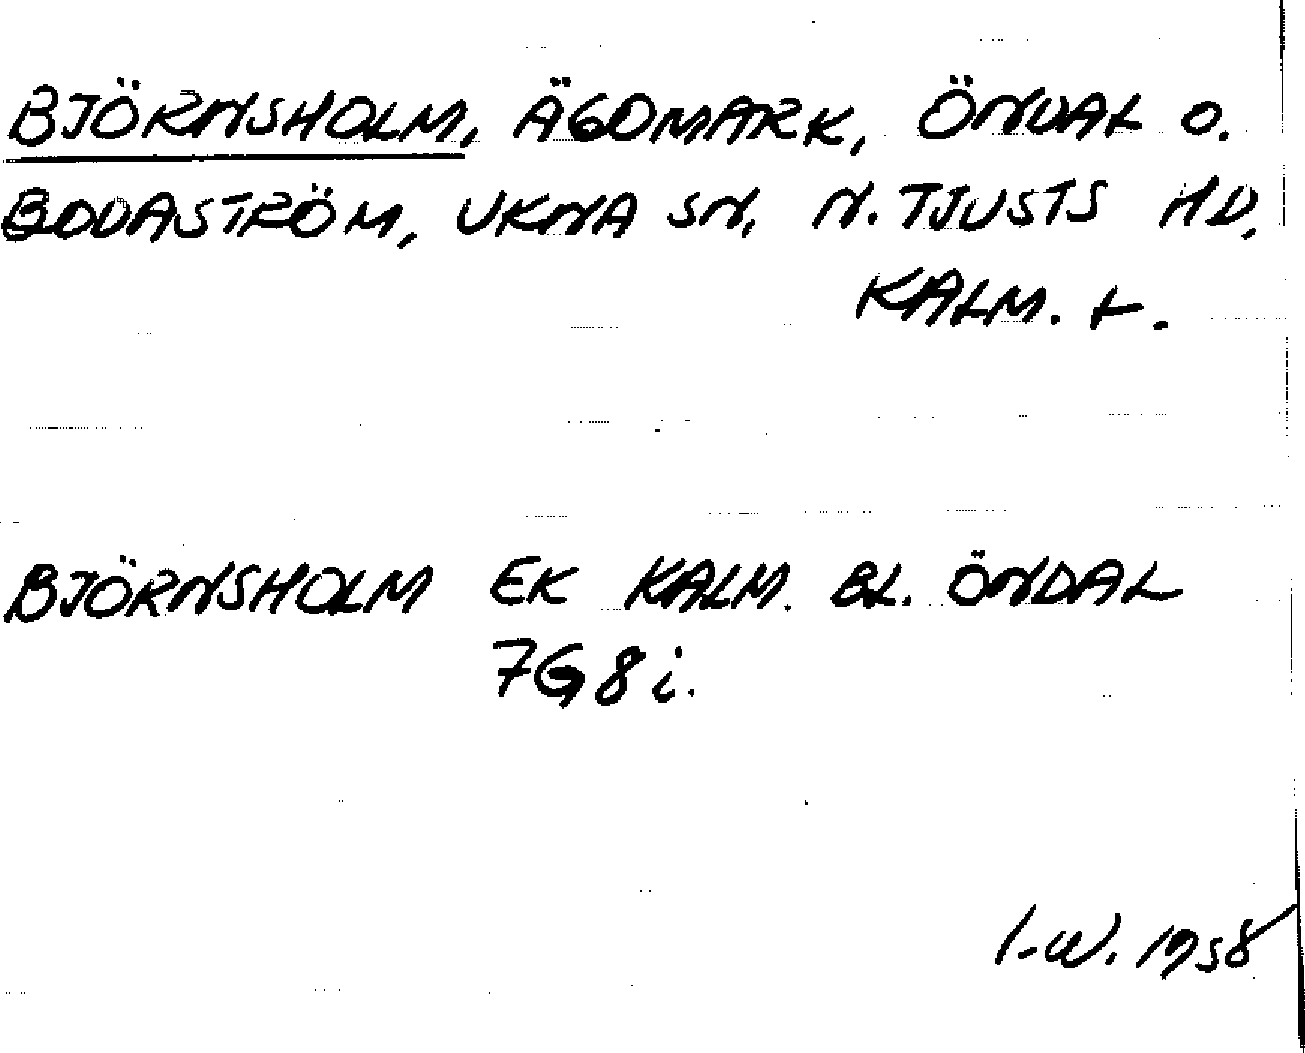 BJÖRNSHOLM, ÄGDMARK, ÖNDAL O.
BODASTRÖM, UKNA SN, N. TJUSTS HD,
KALM. L.
BJÖRNSHOLM EK KALM. BL. ÖNDAL
7G8i.
I-W. 1958